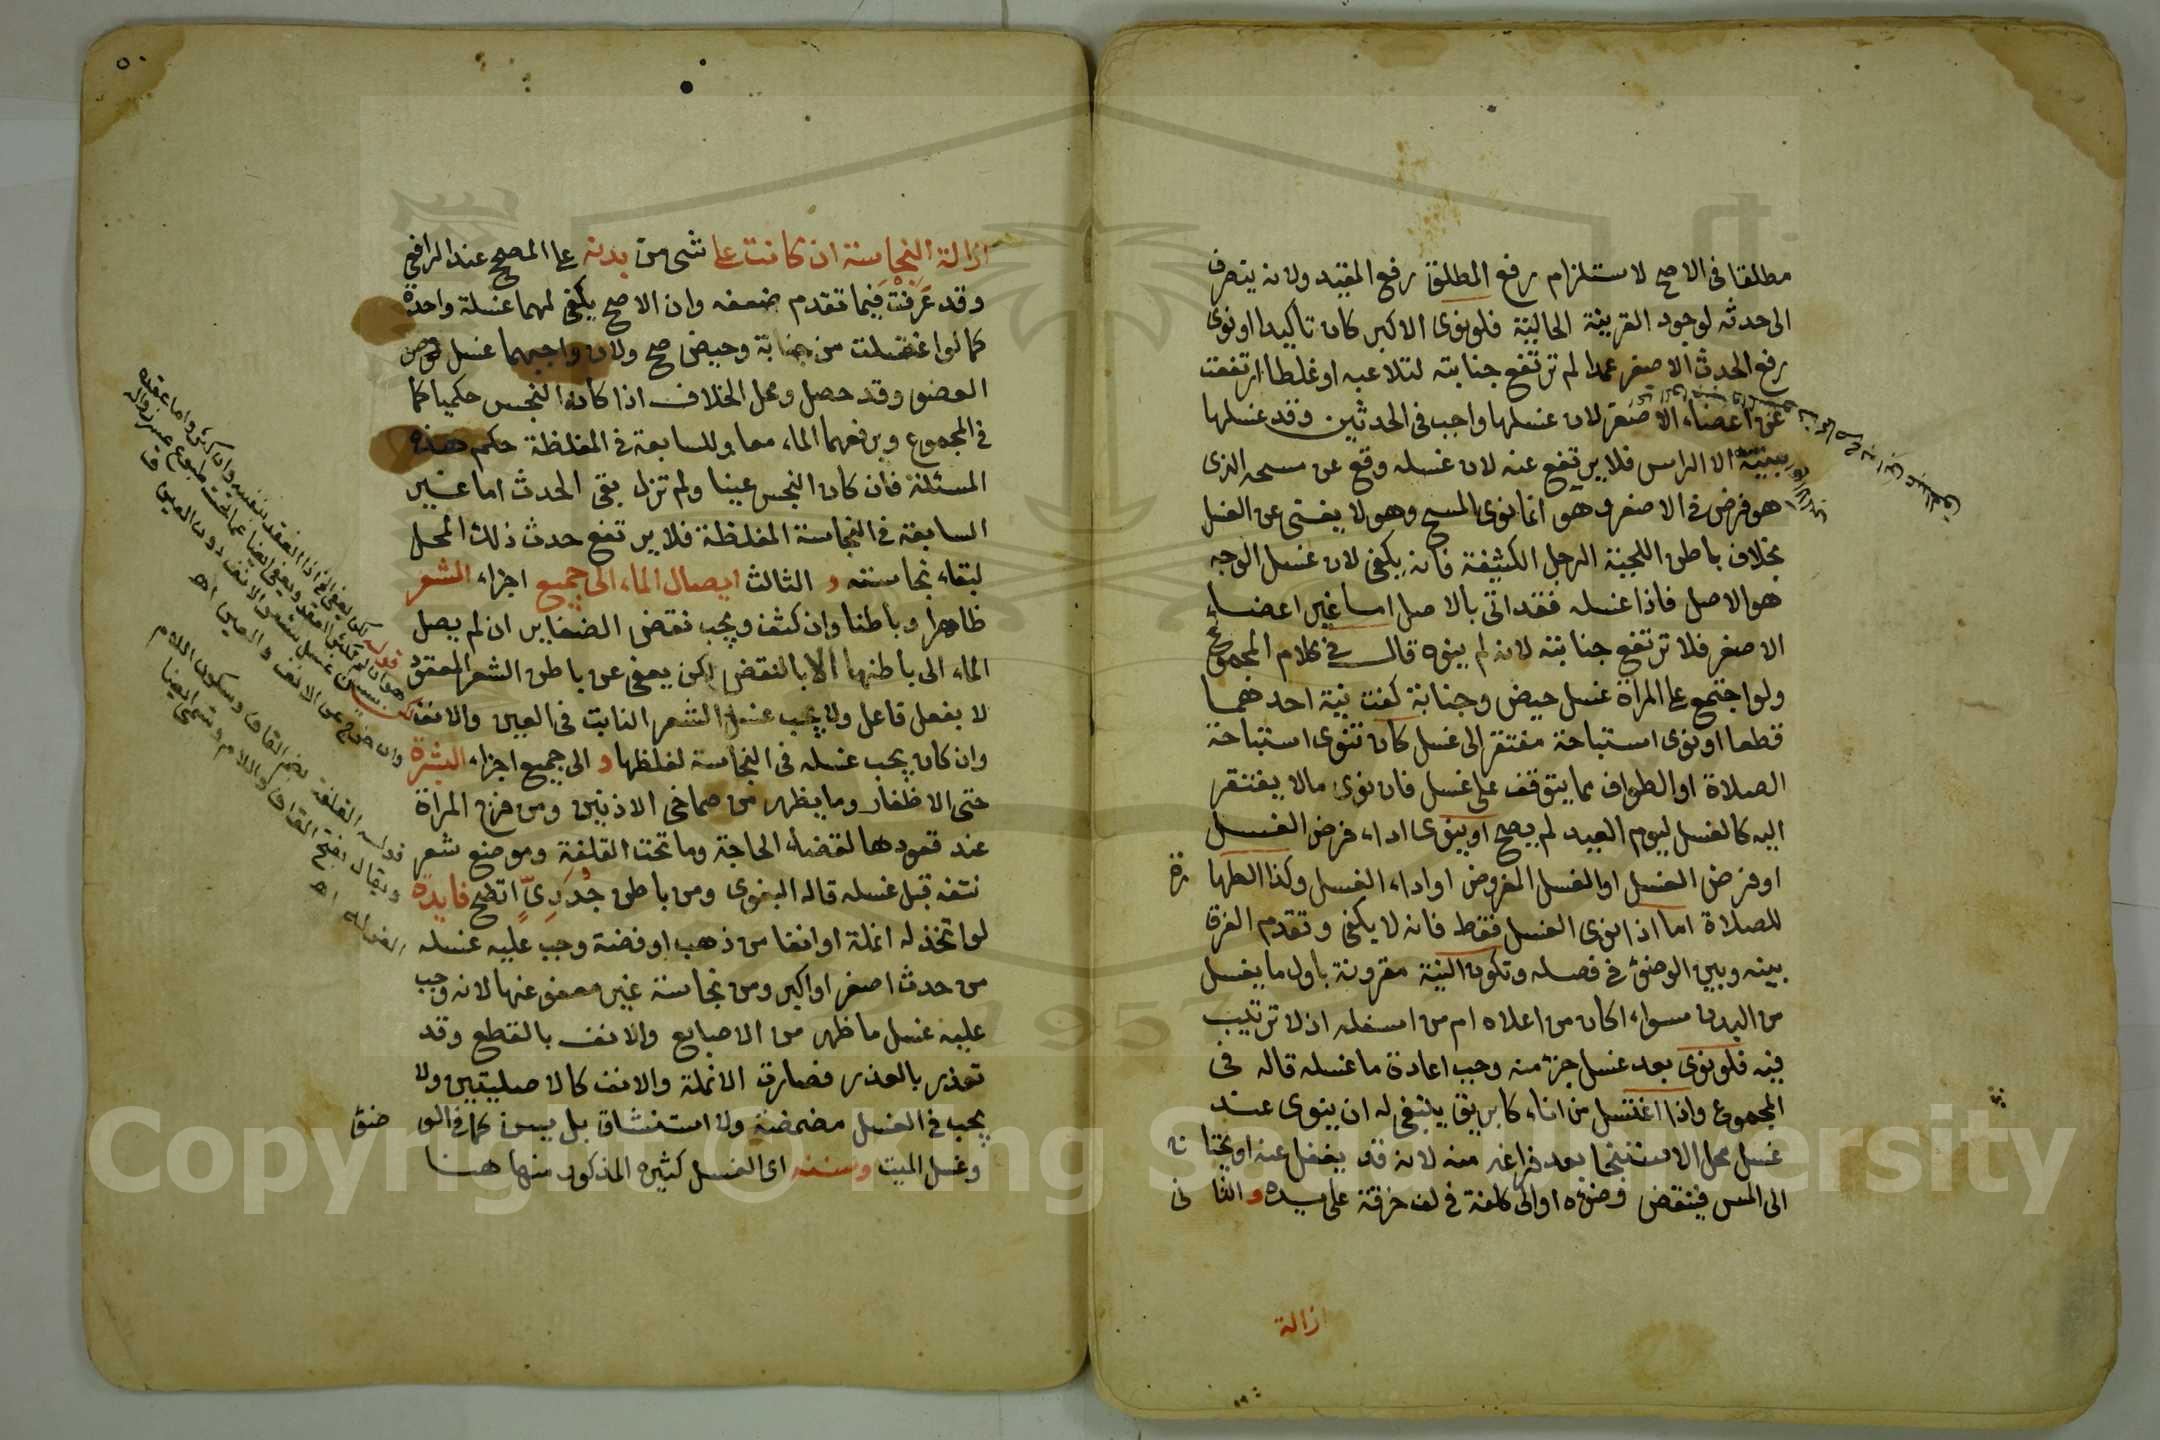 مطلقا فى الاصح لاستلزام رفع المطلق رفع المقيد ولانه ينصرف
الى حدثه لوجود القرينة الحالية فلو نوى الاكبر كان تاكيدا او نوى
رفع الحدث الاصغر عمدا لم ترتفع جنابته لتلاعبه او غلطا ارتفعت
عن اعضاء الاصغر لان غسلها واجب فى الحدثين وقد غسلها
بنيته الا الراس فلا يرتفع عنه لان غسله وقع عن مسحه الذى
هو فرض فى الاصغر وهو انما نوى المسح وهو لا يغنى عن الغسل
بخلاف باطن اللحية الرجل الكثيفة فانه يكفى لان غسل الوجه
هو الاصل فاذا غسله فقد اتى بالاصل اما غير اعضاء
الاصغر فلا ترتفع جنابته لانه لم ينوه قال فى كلام المجموع
ولو اجتمع على المراة غسل حيض وجنابة كفت نية احدهما
قطعا او نوى استباحة مفتقر الى غسل كان تنوى استباحة
الصلاة او الطواف مما يتوقف على غسل فان نوى مالا يفتقر
اليه كالغسل ليوم العيد لم يصح او ينوى اداء فرض الغسل
او فرض الغسل او الغسل المفروض او اداء الغسل وكذا الطها رة
للصلاة اما اذا نوى الغسل فقط فانه لا يكفى وتقدم الفرق
بينه وبين الوضوء فى فصله وتكون النية مقرونة باول ما يغسل
من البدن سواء اكان من اعلاه ام من اسفله اذ لا ترتيب
فيه فلو نوى بعد غسل جزء منه وجب اعادة ما غسله قاله فى
المجموع واذا اغتسل من اناء كابريق ينبغى له ان ينوى عند
غسل محل الاستنجا بعد فراغه منه لانه قد يغفل عنه او يحتا ج
الى المس فينتقض وضوءه او الى كلفة فى لف خرقة على يده و الثا نى
ازالة
ازالة النجاسة ان كانت على شى من بدنه على المصحح عند الرافعى
وقد عرفت فيما تقدم ضعفه وان الاصح يكفى لهما غسلة واحدة
كما لو اغتسلت من جنابة وحيض صح ولان واجبهما غسل
العضو وقد حصل ومحل الخلاف اذا كان النجس حكميا كما
فى المجموع ويرفعهما الماء معا وللسابعة فى المغلظة حكم هذه
المسئلة فان كان النجس عينا ولم تزل بقى الحدث اما غير
السابعة فى النجاسة المغلظة فلا يرتفع حدث ذلك المحل
لبقاء نجاسته و الثالث ايصال الماء الى جميع اجزاء الشعر
ظاهرا وباطنا وان كثف ويجب نقض الضفاير ان لم يصل
الماء الى باطنها الا بالنقض لكن يعفى عن باطن الشعر المعقود
لا بفعل فاعل ولا يجب غسل الشعر النابت فى العين والانف
وان كان يجب غسله فى النجاسة لغلظها و الى جميع اجزاء البشرة
حتى الاظفار وما يظهر من صماخى الاذنين ومن فرج المراة
عند قعودها لقضاء الحاجة وما تحت القلفة وموضع شعر
نتفه قبل غسله قاله البغوى ومن باطن جدرى اتضح فايدة
لو اتخذ له انملة او انفا من ذهب او فضة وجب عليه غسله
من حدث اصغر او اكبر ومن نجاسة غير معفو عنها لانه وجب
عليه غسل ما ظهر من الاصابع والانف بالقطع وقد
تعذر بالعذر فصارت الانملة والانف كالاصليتين ولا
يجب فى الغسل مضمضة ولا استنشاق بل يسن كما فى الو ضوء
وغسل الميت وسننه اى الغسل كثيره المذكور منها هنا
قوله القلفة بضم القاف وسكون اللام
ويقال بفتح القاف واللام
Copyright © King Saud University
1957